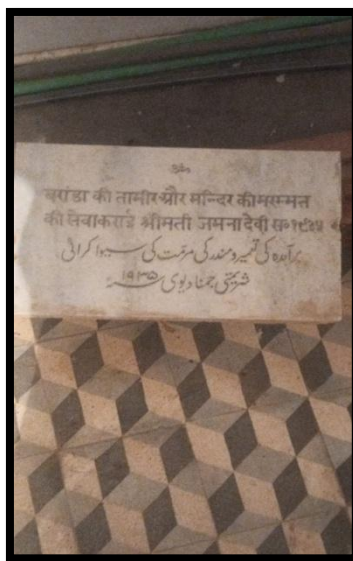 ॐ
बरांडा की तामीर और मन्दिर की मरम्मत
की सेवा कराई श्रीमती जमनादेवी स० १९३५
برآمدہ کی تعمیر و مندر کی مرمت کی سیوا کرائی
شریمتی جمنا دیوی ۱۹۳۵